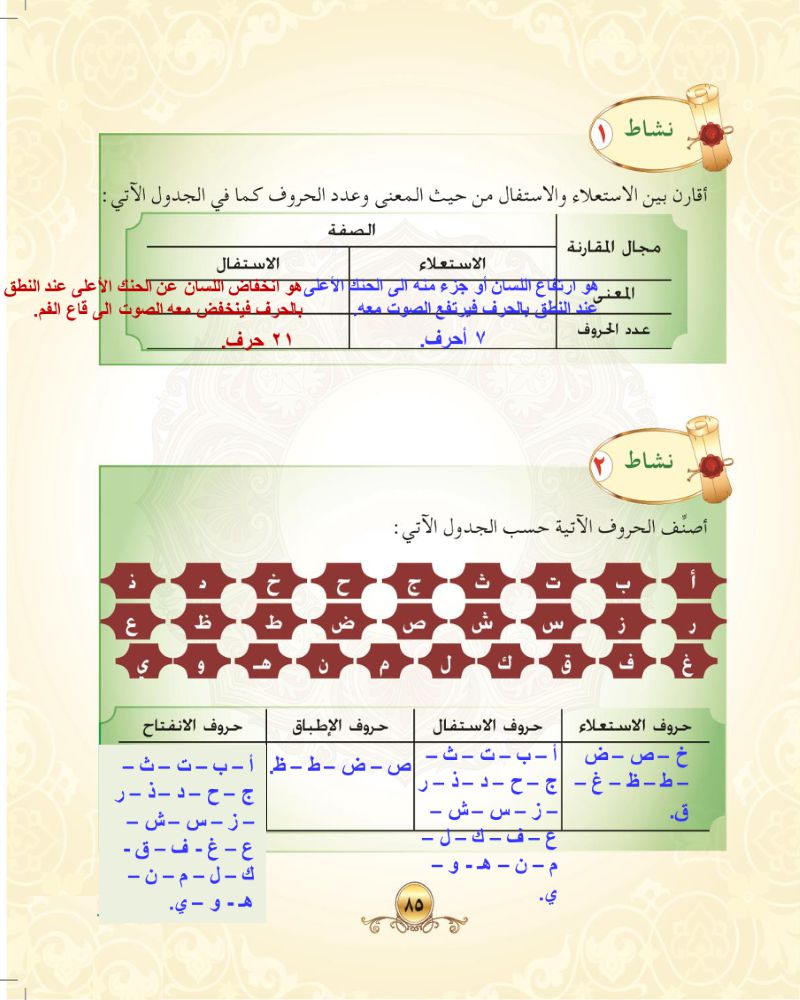 نشاط ١
أقارن بين الاستعلاء والاستفال من حيث المعنى وعدد الحروف كما في الجدول الآتي:
مجال المقارنة
الصفة
الاستعلاء
الاستفال
المعنى
هو ارتفاع اللسان أو جزء منه الى الحنك الأعلى
عند النطق بالحرف فيرتفع الصوت معه.
هو انخفاض اللسان عن الحنك الأعلى عند النطق
بالحرف فينخفض معه الصوت الى قاع الفم.
عدد الحروف
٧ أحرف.
٢١ حرف.
نشاط ٢
أصنِّف الحروف الآتية حسب الجدول الآتي:
أ ب ت ث ج ح خ د ذ
ر ز س ش ص ض ط ظ ع
غ ف ق ك ل م ن هـ و ي
حروف الاستعلاء
حروف الاستفال
حروف الإطباق
حروف الانفتاح
خ – ص – ض
– ط – ظ – غ –
ق.
أ – ب – ت – ث –
ج – ح – د – ذ – ر
– ز – س – ش –
ع – ف – ك – ل –
م – ن – هـ - و –
ي.
ص – ض – ط – ظ.
أ – ب – ت – ث –
ج – ح – د – ذ – ر
– ز – س – ش –
ع – غ - ف – ق -
ك – ل – م – ن –
هـ - و – ي.
٨٥